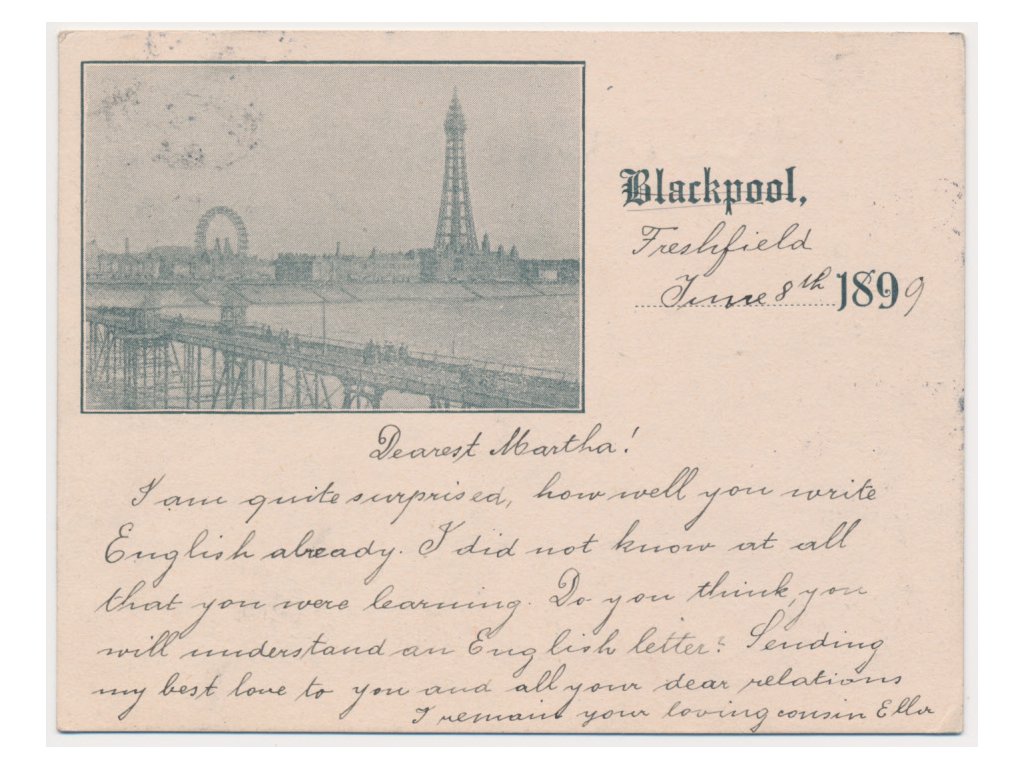 Blackpool,
Freshfield
June 8th 1899
Dearest Martha!
I am quite surprised, how well you write
English already. I did not know at all
that you were learning. Do you think, you
will understand an English letter? Sending
my best love to you and all your dear relations
I remain your loving cousin Ella